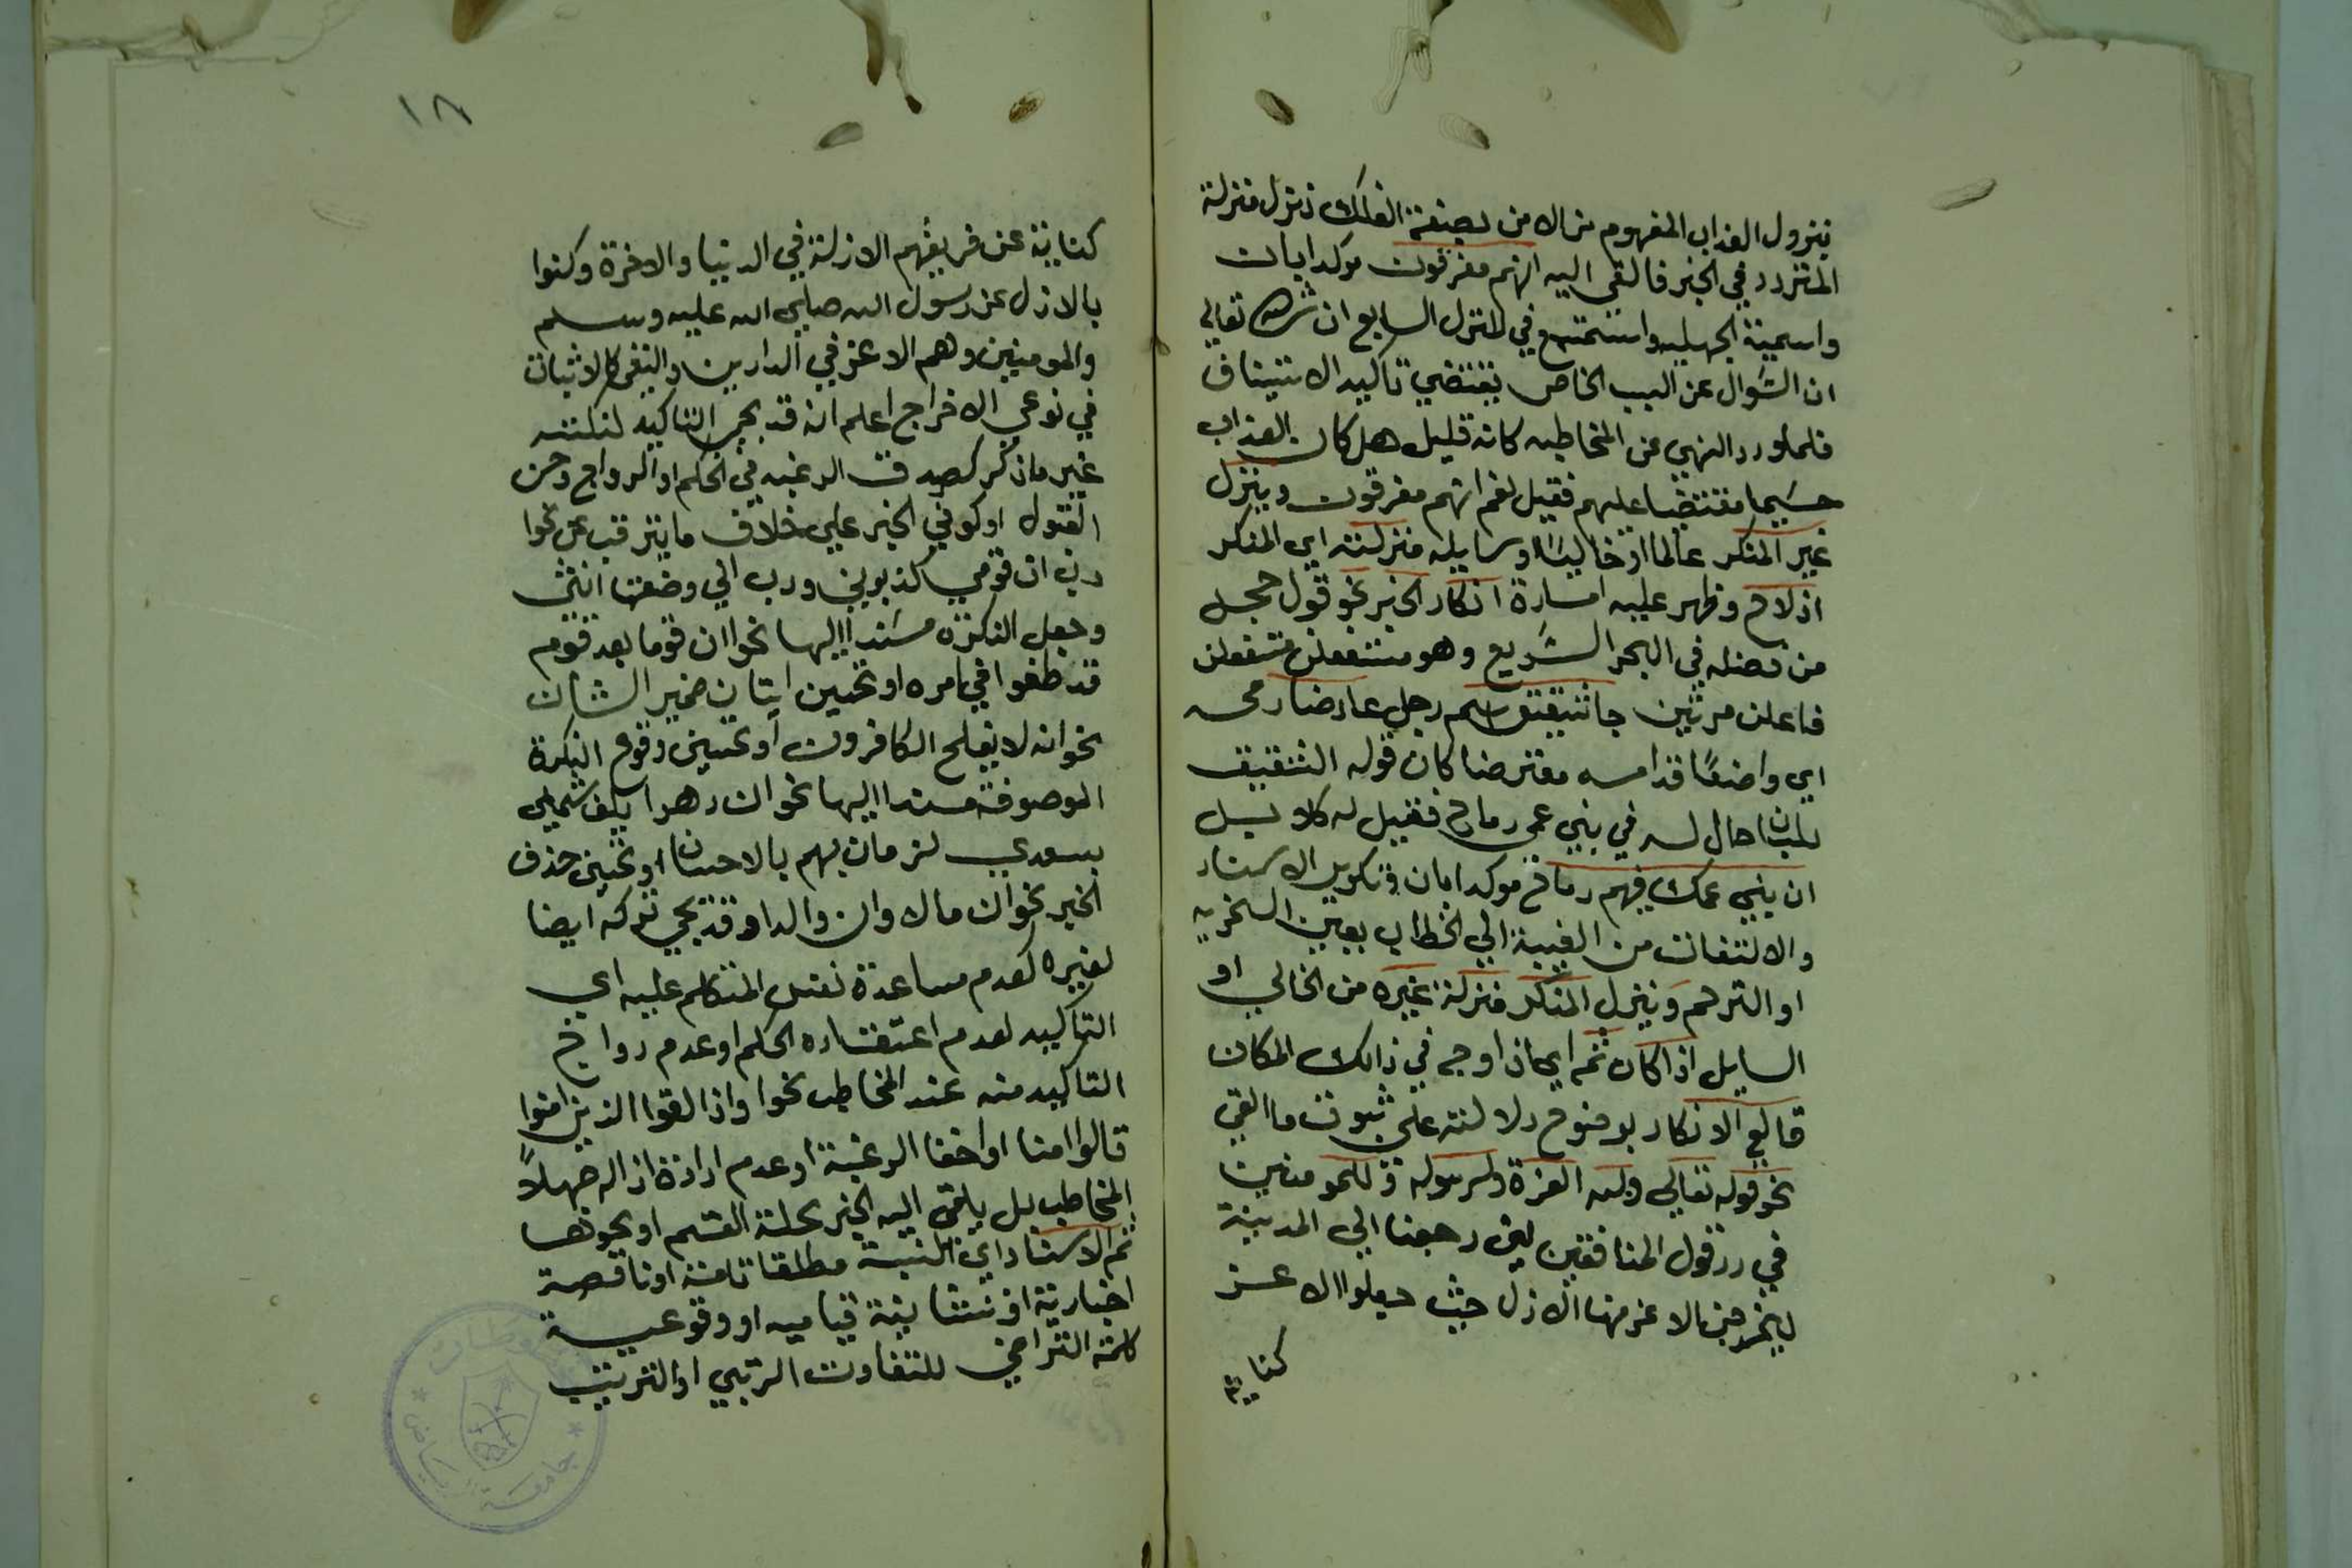 بنزول العذاب المفهوم من الامن بصنعة الفلك نزل منزلة
المتردد في الخبر فالقى اليه انهم مغرقون موكدا بان
واسمية الجمله وستسمع في المنزل السابع ان شاء الله تعالى
ان السوال عن السبب الخاص يقتضي تاكيد الاستيناف
فلما ورد النهي عن المخاطبه كانه قليل هل كان العذاب
حسيما مقتضيا عليهم فقيل نعم انهم مغرقون وينزل
غير المنكر عالما او خاليا او سايله منزلته اي المنكر
اذ لاح وظهر عليه امارة انكار الخبر نحو قول حجل
من فضله في البحر السريع وهو مستفعلن مستفعلن
فاعلن مرتين جا شقيق اسم رجل عارضا رمحه
اي واضعا قدامه معترضا كان قوله الشقيق
بلسان حال ليس في بني عمي رماح فقيل له كلا بل
ان بني عمك فيهم رماح موكدا بان وتكرير الاسناد
والالتفات من الغيبة الى الخطاب بعين السخرية
او الترحم وينزل المنكر منزلة غيره من الخالي او
السايل اذا كان ثم اي اذا وجد في ذالك المكان
قالع الانكار بوضوح دلالته على ثبوت ما القي
نحو قوله تعالى ولله العزة ولرسوله وللمومنين
في رد قول المنافقين لين رجعنا الى المدينة
ليخرجن الاعز منها الاذل حيث جعلوا الاعز
كناية
١٨
كناية عن فريقهم الازلة في الدنيا والاخرة وكنوا
بالاذل عن رسول الله صلى الله عليه وسلم
والمومنين وهم الاعز في الدارين والنفي كالاثبات
في نوعي الاخراج اعلم انه قد يجي التاكيد لنكتته
غير ما ذكر كصدق الرغبه في الحكم او الرواج وحسن
القبول او كون الخبر على خلاف ما يترقب عن نحوا
رب ان قومي كذبون ورب اني وضعتها انثى
وجعل النكرة مسندا اليها نحو ان قوما بعد قوم
قد طغوا في امره او تحسين اتيان ضمير الشان
نحو انه لا يفلح الكافرون او تحسين وقوع النكرة
الموصوفة مسندا اليها نحو ان دهرا يلف شملي
بسعدي لزمان يهم بالاحسان او تحسين حذف
الخبر نحو ان مالا وان والدا وقد يجي تركه ايضا
لغيره لعدم مساعدة نفس المتكلم عليه اي
التاكيد لعدم اعتقاده الحكم او عدم رواج
التاكيد منه عند المخاطب نحوا واذا لقوا الذين امنوا
قالوا امنا او اخفا الرغبة او عدم ارادة ازاله جهلا
المخاطب بل يلقي اليه الخبر تحلة القسم او نحوها
ثم الاسناد اي النسبة مطلقا تامة او ناقصة
اخبارية او انشائية قياميه او وقوعية
كلمة التراخي للتفاوت الرتبي او الترتيب
جامعة الرياض